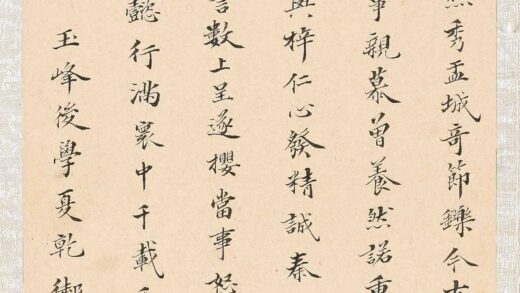 秀盂城奇節鑠今古
事親慕曾養然諾重
與梓仁心發精誠秦
言數上呈遂攖當事怒
懿行滿寰中千載
玉峰後學夏乾御